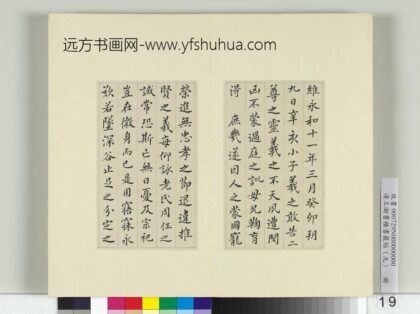 远方书画网-www.yfshuhua.com
維永和十一年三月癸卯朔
九日辛亥小子羲之敢告二
尊之靈羲之不天夙遭閔
凶不蒙過庭之訓母兄鞠育
得 庶幾遂因人之蒙國寵
榮進無忠孝之節退違推
賢之義每仰詠老氏周任之
誡常恐斯亡無日憂及宗祀
豈在微身而已是用寤寐永
歎若墜深谷止足之分定之
故書 000729N000000000
清王澍書積書巖帖(九) 冊
19